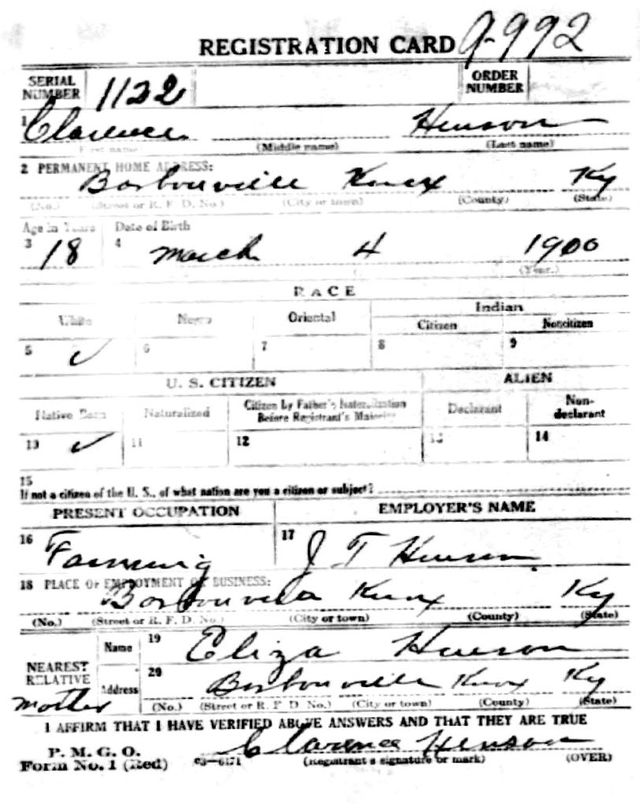 REGISTRATION CARD 9-992
SERIAL NUMBER 1122 ORDER NUMBER
1 Clarence Henson
First name (Middle name) (Last name)
2 PERMANENT HOME ADDRESS:
Barbourville Knox Ky
(No.) (Street or R. F. D. No.) (City or town) (County) (State)
Age in Years Date of Birth
3 18 4 March 4 1900
(Year.)
RACE
White Negro Oriental Indian
Citizen Noncitizen
5 ✓ 6 7 8 9
U. S. CITIZEN ALIEN
Native Born Naturalized Citizen by Father's Naturalization Before Registrant's Majority Declarant Non-declarant
10 ✓ 11 12 13 14
15
If not a citizen of the U. S., of what nation are you a citizen or subject?
PRESENT OCCUPATION EMPLOYER'S NAME
16 Farming 17 J T Henson
18 PLACE OF EMPLOYMENT OR BUSINESS:
Barbourville Knox Ky
(No.) (Street or R. F. D. No.) (City or town) (County) (State)
NEAREST RELATIVE Name 19 Eliza Henson
mother Address 20 Barbourville Knox Ky
(No.) (Street or R. F. D. No.) (City or town) (County) (State)
I AFFIRM THAT I HAVE VERIFIED ABOVE ANSWERS AND THAT THEY ARE TRUE
P. M. G. O.
Form No. 1 (Red) 03-6171 Clarence Henson
(Registrant's signature or mark) (OVER)